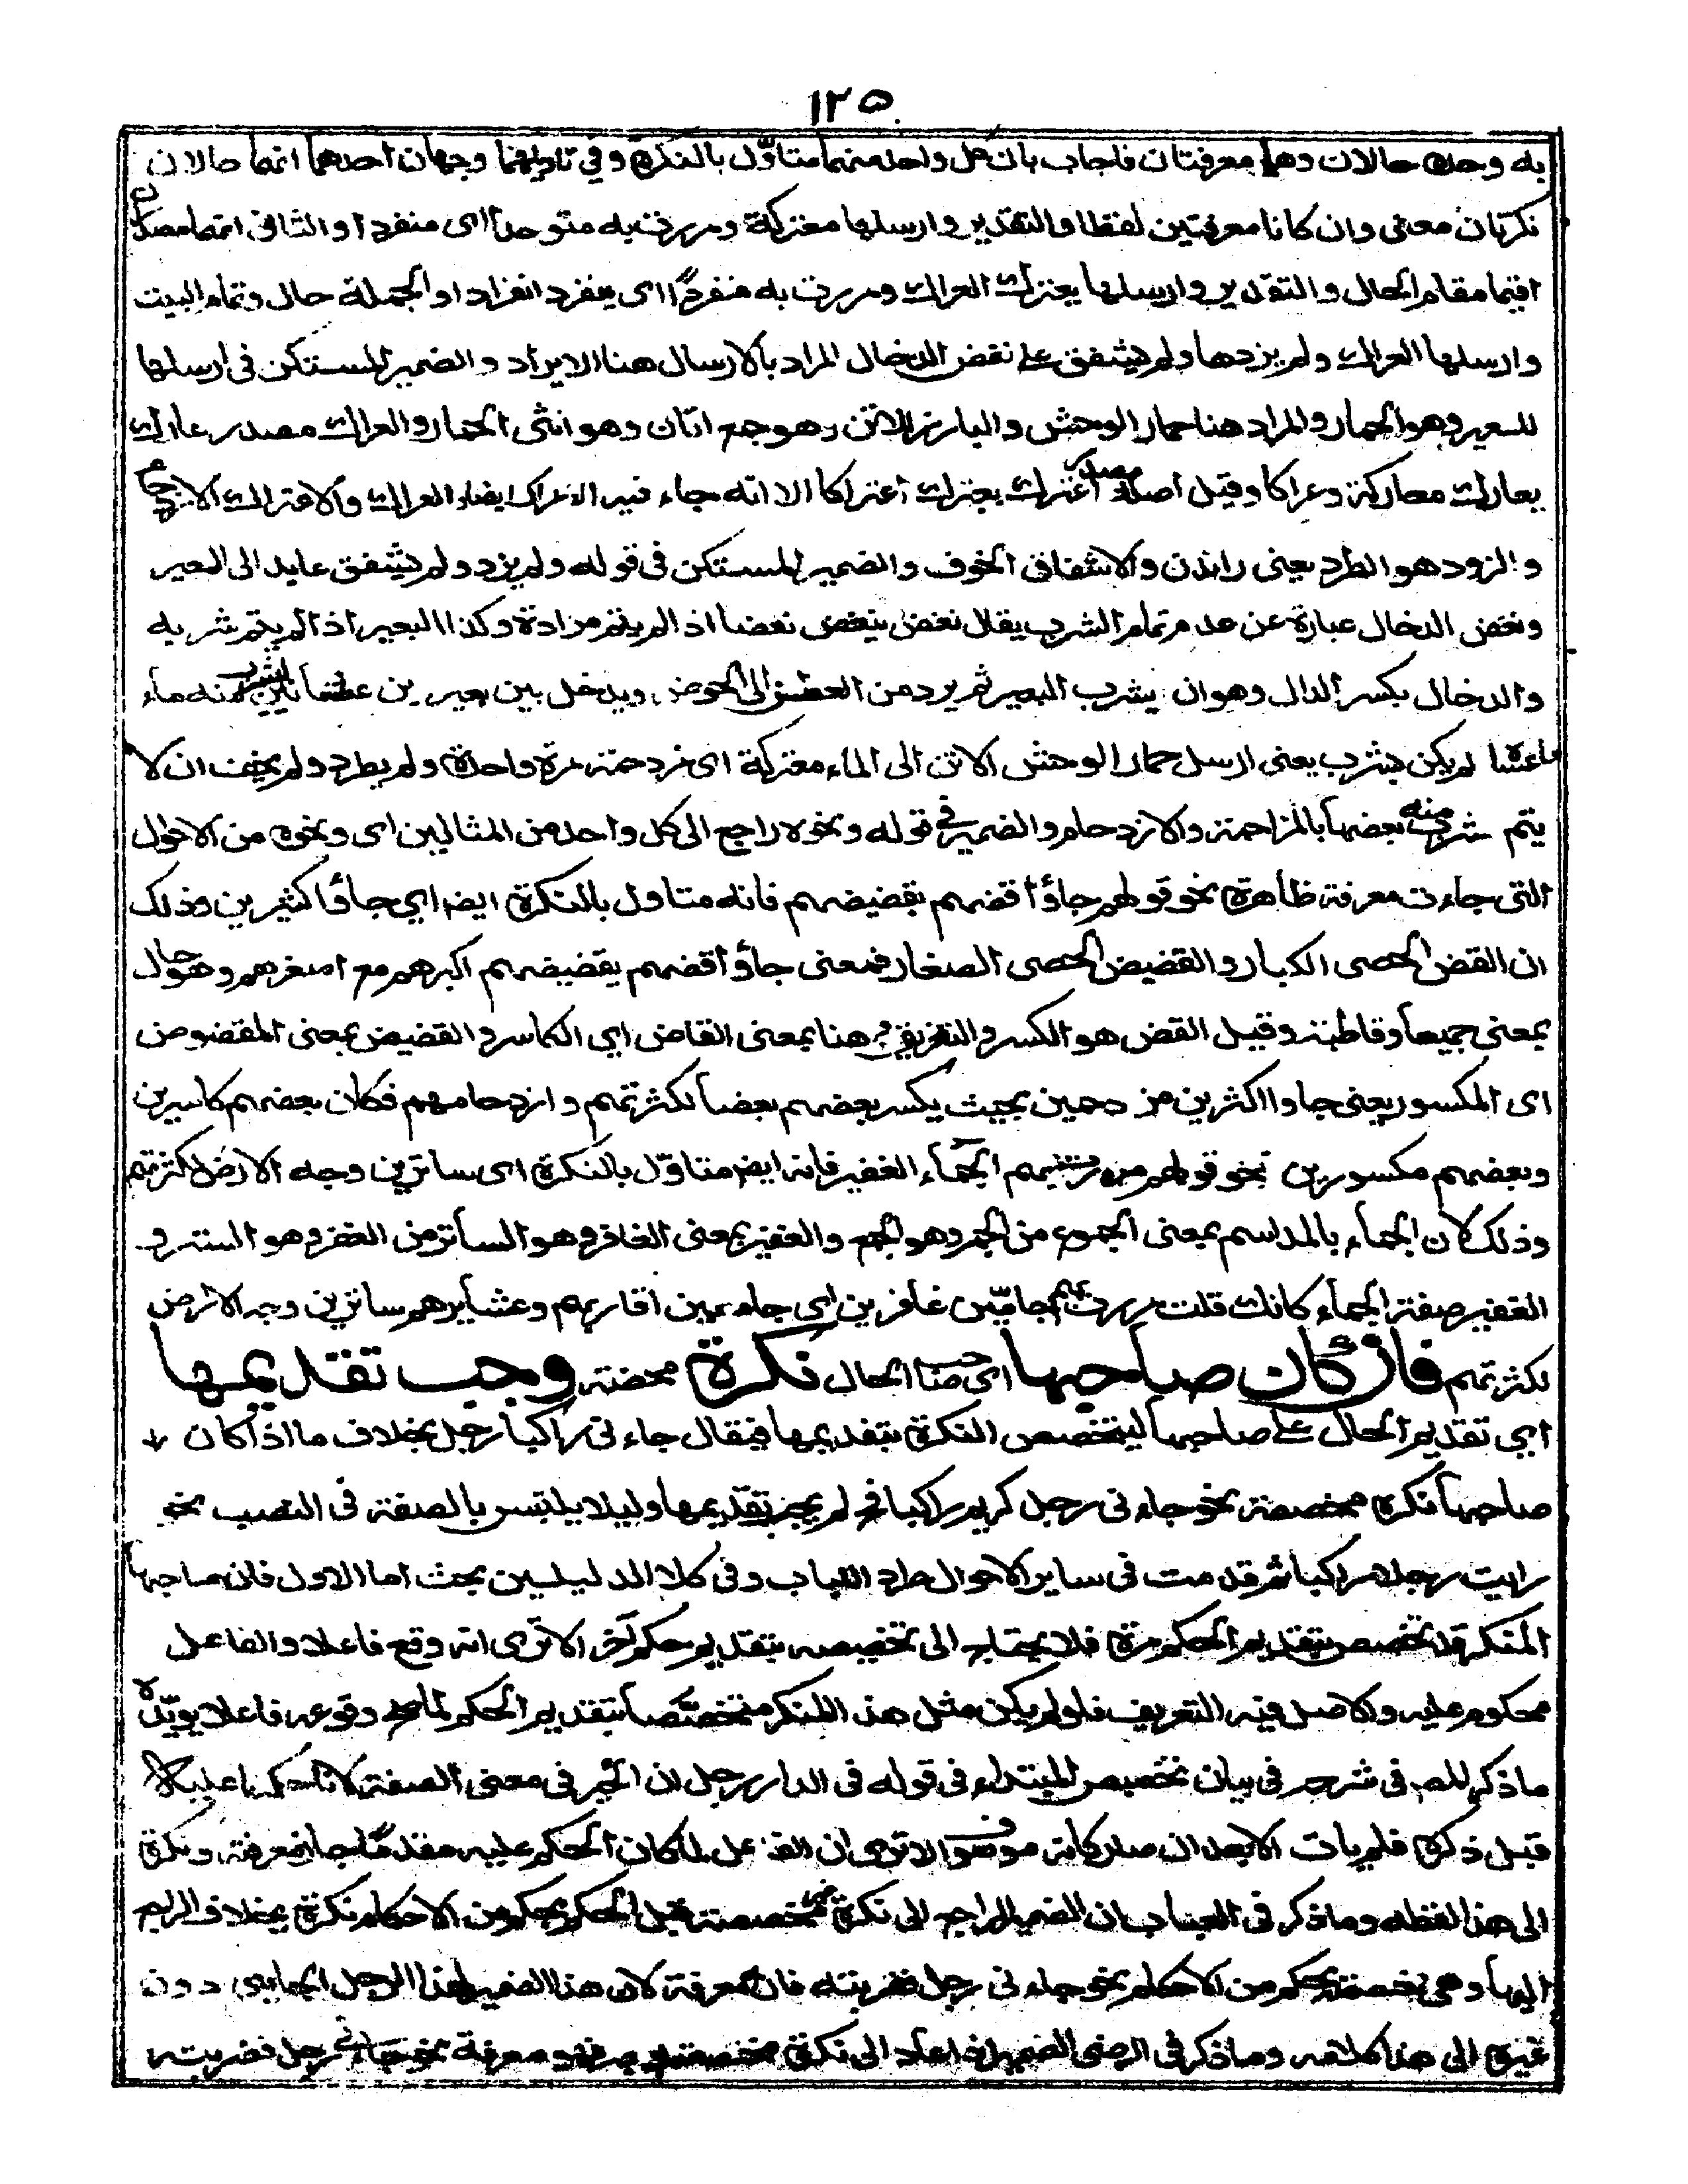 ١٢٥
به وحده حالان وهما معرفتان فاجاب بان كل واحد منهما متاوّل بالنكرة وفي تاويلهما وجهان احدهما انهما حالان
نكرتان معنى وان كانا معرفتين لفظا والتقدير وارسلها معتركة ومررت به متوحدا اى منفردا والثانى انهما مصدران
اقيما مقام الحال والتقدير وارسلها يعترك العراك ومررت به منفردًا اى ينفرد انفرادا والجملة حال وتمام البيت
وارسلها العراك ولم يزدها ولم يشفق على نغض الدخال المراد بالارسال هنا الايراد والضمير المستكن فى ارسلها
للعير وهو الحمار والمراد هنا حمار الوحش والبارز للاتن وهو جمع اتان وهو انثى الحمار والعراك مصدر عارك
يعارك معاركة وعراكا وقيل اصله مصدر اعترك يعترك اعتراكا الا انه جاء فيه العراك العراك والاعتراك الازدحام
والزود هو الطرد يعنى راندن والاشفاق الخوف والضمير المستكن فى قوله ولم يزد ولم يشفق عايد الى العير
ونغض الدخال عبارة عن عدم تمام الشرب يقال نغض ينغض نغضا اذا لم يتم مراده وكذا البعير اذا لم يتم شربه
والدخال بكسر الدال وهو ان يشرب البعير ثم يرد من العطن الى الحوض ويدخل بين بعيرين عطشانين ليشرب منه ماء
ما عساه لم يكن يشرب يعنى ارسل حمار الوحش الاتن الى الماء معتركة اى مزدحمة مرة واحدة ولم يطرد ولم يخف ان لا
يتم شرب منه بعضها بالمزاحمة والازدحام والضمير فى قوله ونحوه راجع الى كل واحد من المثالين اى ونحوه من الاحوال
التى جاءت معرفة ظاهرة نحو قولهم جاؤا قضهم بقضيضهم فانه متاول بالنكرة ايضا اي جاؤا كثيرين وذلك
ان القض الحصى الكبار والقضيض الحصى الصغار فمعنى جاؤا قضهم بقضيضهم اكبرهم مع اصغرهم وهو حال
بمعنى جميعا وقاطبة وقيل القض هو الكسر والتفريق هنا بمعنى القاض اي الكاسر والقضيض بمعنى المقضوض
اى المكسور يعنى جاوا اكثرين مزدحمين بحيث يكسر بعضهم بعضا لكثرتهم وازدحامهم فكان بعضهم كاسرين
وبعضهم مكسورين نحو قولهم مررت بهم الجمّاء الغفير فانه ايضا متاوّل بالنكرة اى ساترين وجه الارض لكثرتهم
وذلك لان الجماء بالمد اسم بمعنى الجموع من الجم وهو الجمع والغفير بمعنى الغافر وهو الساتر من الغفر وهو الستر و
الغفير صفة الجماء كانك قلت مررت بهم جامّين غافرين اى جاء مين اقاربهم وعشايرهم ساترين وجه الارض
لكثرتهم فان كان صاحبها اى صاحب الحال نكرة محضة وجب تقديمها
اي تقديم الحال على صاحبها ليتخصص النكرة بتقديمها فيقال جاءنى راكبا رجل بخلاف ما اذا كان
صاحبها نكرة مخصصة نحو جاءنى رجل كريم راكبا فح لم يجز تقديمها ولئلا يلتبس بالصفة فى النصب نحو
رايت رجلا راكبا ثم قدمت فى ساير الاحوال طرد اللباب وفى كلا الدليلين بحث اما الاول فلان صاحبها
المنكر قد تخصص بتقديم الحكم مرة فلا يحتاج الى تخصيصه بتقديم حكم آخر الا ترى انه وقع فاعلا والفاعل
محكوم عليه والاصل فيه التعريف فلو لم يكن مثل هذا المنكر متخصصًا بتقديم الحكم لما صح وقوعه فاعلا يؤيّده
ما ذكر المص فى شرحه فى بيان تخصيص المبتداء فى قوله فى الدار رجل ان الخبر فى معنى الصفة
قبل ذكره فلم يات الا بعد ان صار كانه موصوف الا ترى ان الفاعل لما كان الحكم عليه مقدمًا جاء معرفة ونكرة
الى هذا لفظه وما ذكر فى العباب ان الضمير الراجع الى نكرة غير مخصصة قبل الحكم بحكم من الاحكام نكرة بخلاف الراجع
اليها وهى مخصصة بحكم من الاحكام نحو جاءنى رجل فضربته فانه معرفة لان هذا الضمير لهذا الرجل الجايى دون
غيره الى هذا كلامه وما ذكر فى الرضى الضمير اذا عاد الى نكرة مخصصة معرفة نحو جاءنى رجل فضربته